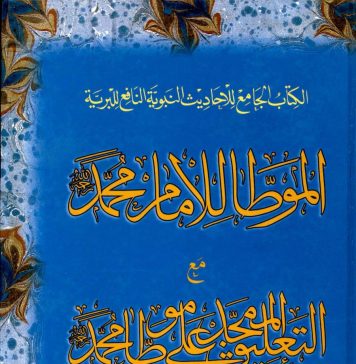 الكتاب الجامع للأحاديث النبوية النافع للبرية
الموطا للإمام محمد
مع
التعليق الممجد على موطا محمد